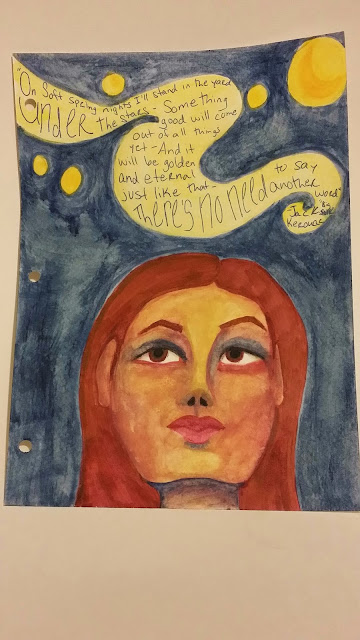 "On Soft spring nights I'll stand in the yard
under the stars - Something
good will come
out of all things
yet - And it
will be golden
and eternal
just like that -
There's no need to say
another
word"
Jack
Kerouac